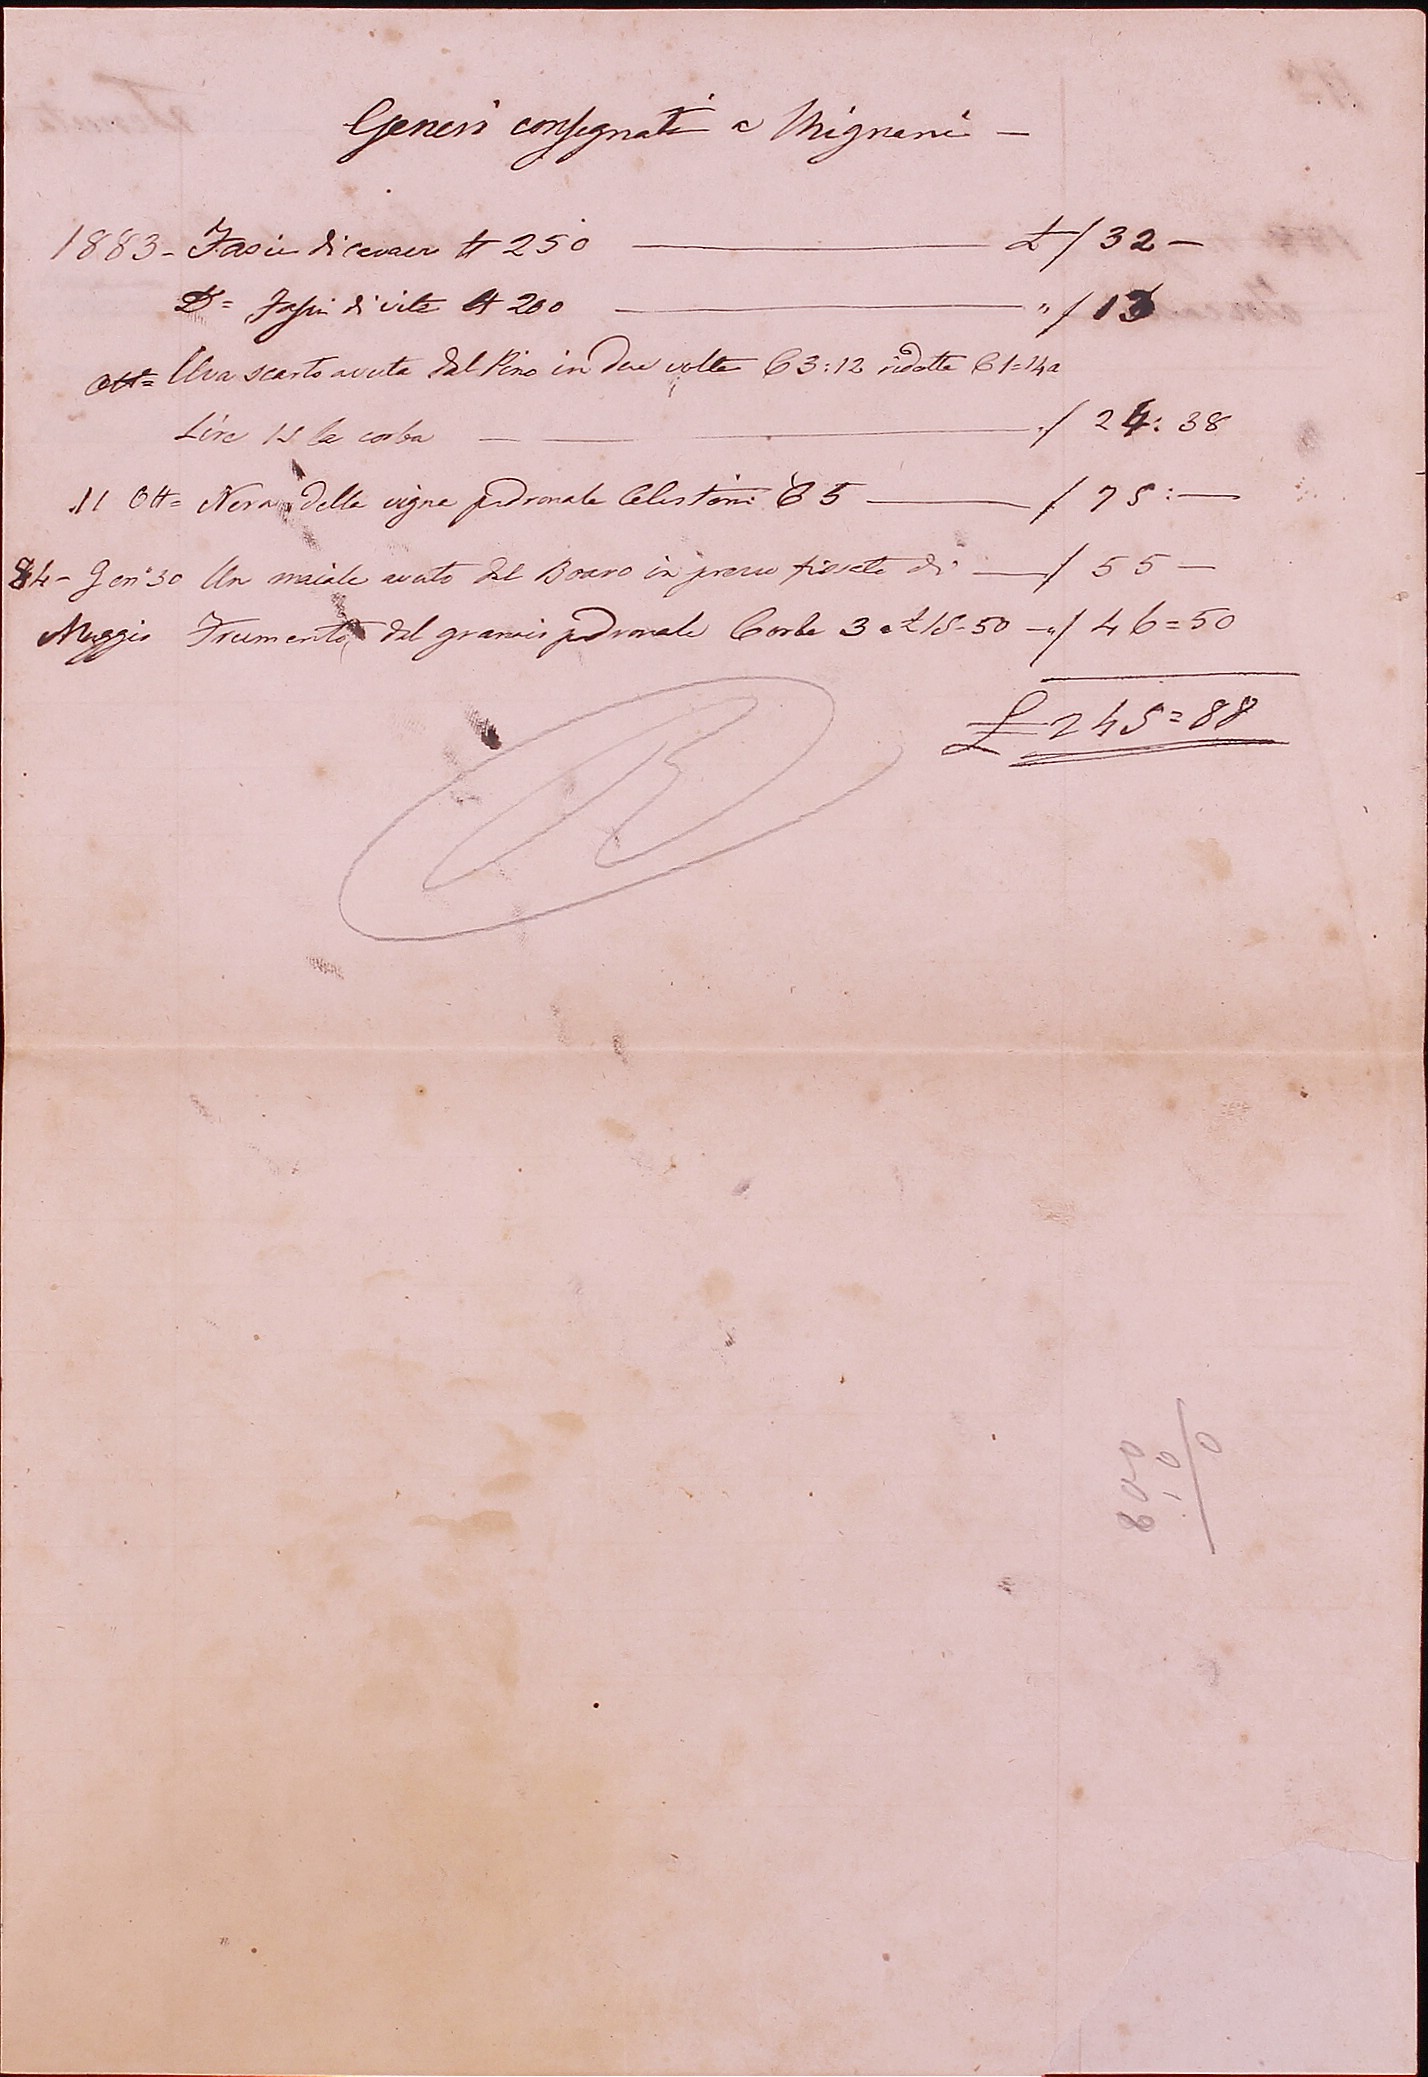 Generi consegnati a Mignani —
1883 - Fasci di # 250 — £/ 32 —
D= Fassi di vite # 200 — "/ 13
Ott= Uva scarto avuta dal Pino in due volte C 3:12 ridotte C 1=14 a
Lire 15 la corba — "/ 24: 38
11 Ott= Nera della vigna padronale Celestini C 5 — / 75: —
84 - Gen° 30 Un maiale avuto dal Boaro in prezzo fissato di — / 55 —
Maggio Frumento dal granaio padronale Corbe 3 a £ 15-50 — "/ 46=50
£ 245=88
800
10
0